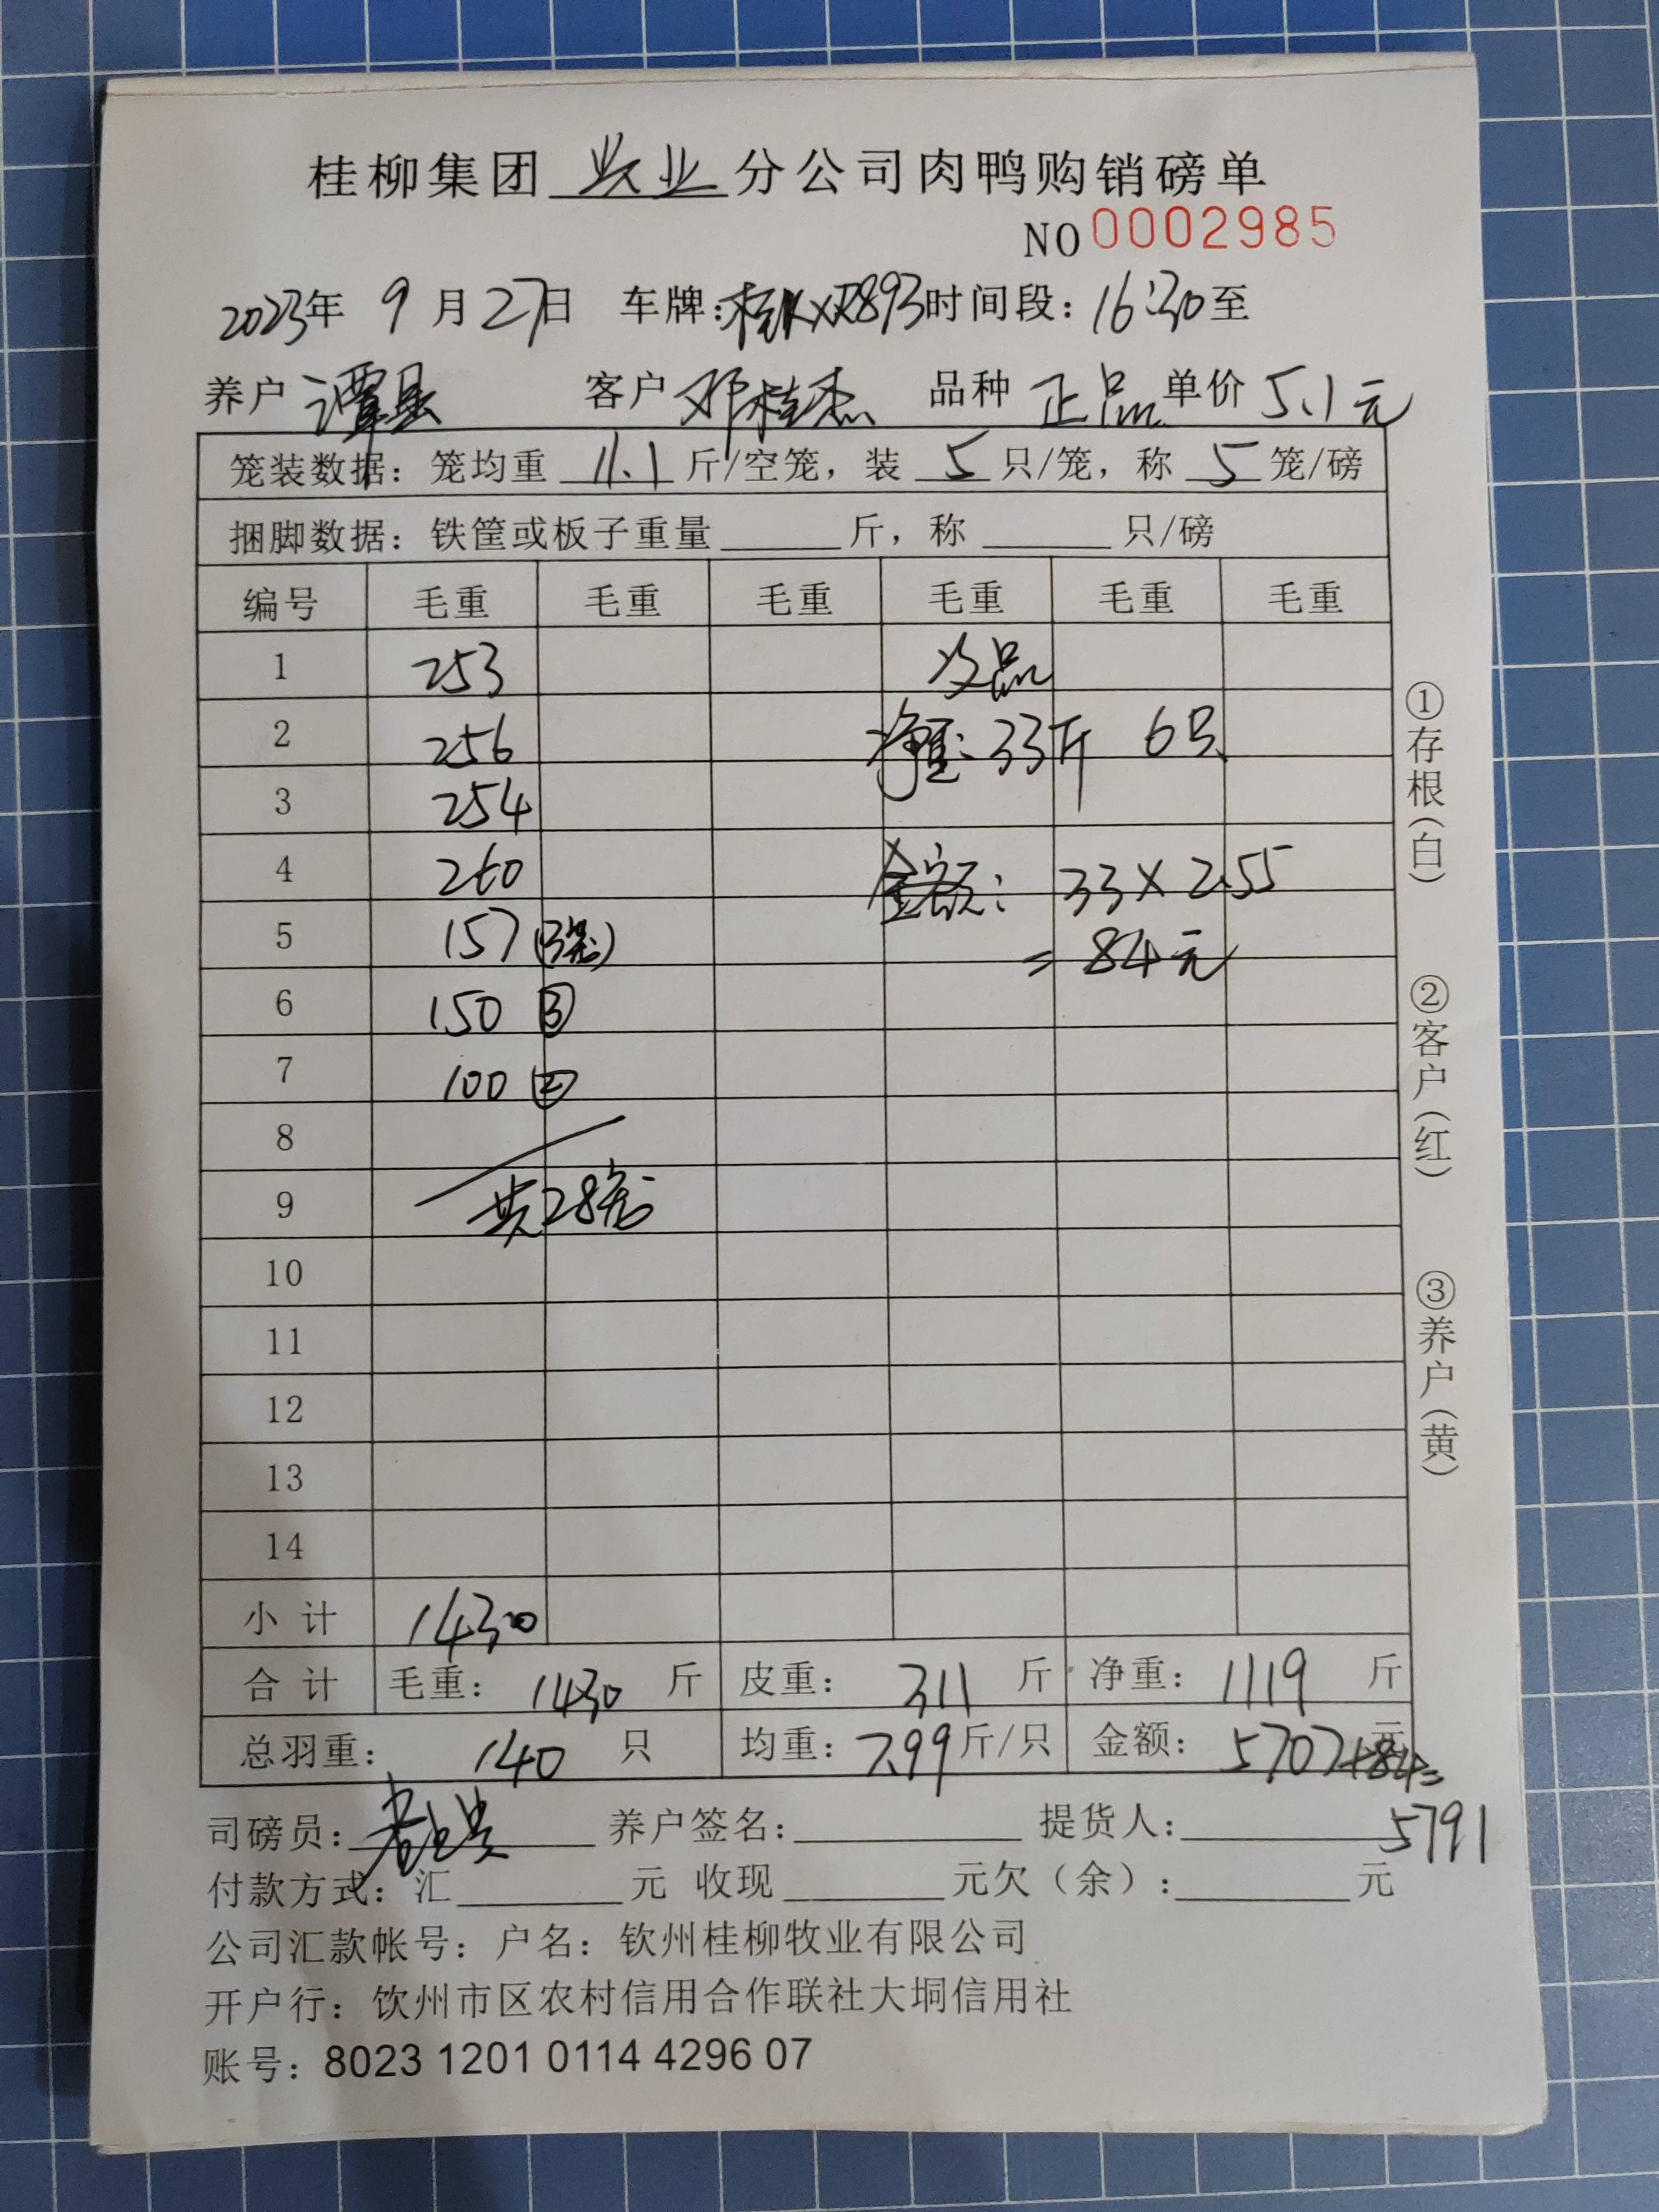 桂柳集团 兴业 分公司肉鸭购销磅单
NO 0002985
2023年 9 月 27日 车牌: 893 时间段: 16:30 至
养户 谭 客户 邓桂杰 品种 正品 单价 5.1元
笼装数据: 笼均重 11.1 斤/空笼, 装 5 只/笼, 称 5 笼/磅
捆脚数据: 铁筐或板子重量 斤, 称 只/磅
编号 毛重 毛重 毛重 毛重 毛重 毛重
1 253 次品
2 256 净重: 33斤 6只
3 254
4 260 金额: 33×2.55
5 157 (3笼) = 84元
6 150 ③
7 100 ②
8
9 共28笼
10
11
12
13
14
小计 1430
合计 毛重: 1430 斤 皮重: 311 斤 净重: 1119 斤
总羽重: 140 只 均重: 7.99 斤/只 金额: 5707+84= 元
5791
司磅员: 养户签名: 提货人:
付款方式: 汇 元 收现 元欠(余): 元
公司汇款帐号: 户名: 钦州桂柳牧业有限公司
开户行: 钦州市区农村信用合作联社大垌信用社
账号: 8023 1201 0114 4296 07
①存根(白)
②客户(红)
③养户(黄)